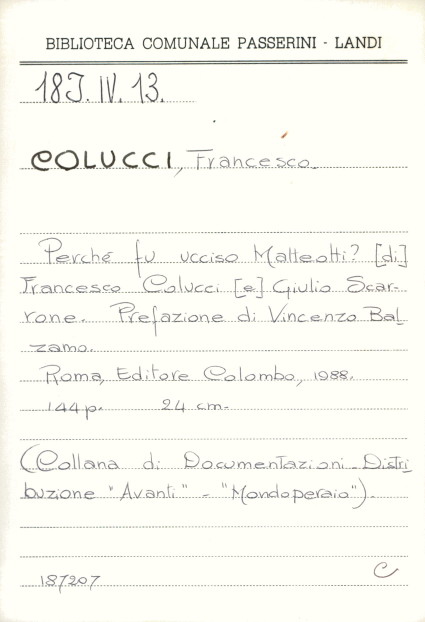 BIBLIOTECA COMUNALE PASSERINI - LANDI
18J. IV. 13.
COLUCCI, Francesco.
Perché fu ucciso Matteotti? [di]
Francesco Colucci [e] Giulio Scar-
rone. Prefazione di Vincenzo Bal
zamo.
Roma, Editore Colombo, 1988.
144 p. 24 cm.
(Collana di Documentazioni. Distri
buzione "Avanti" - "Mondoperaio").
187207 C